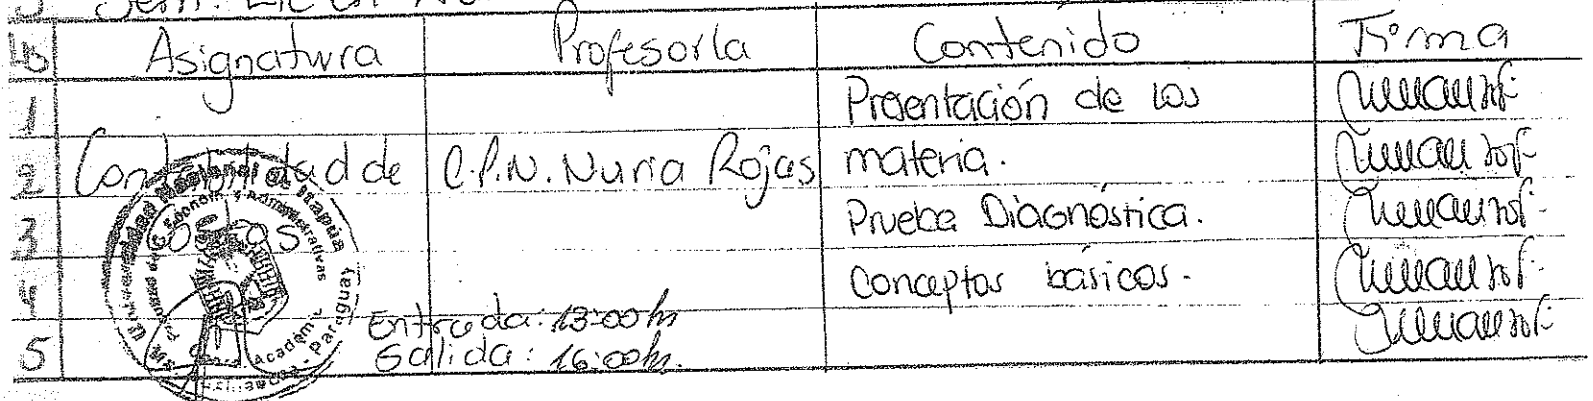 5 Sem. Lic. en
Asignatura Profesor/a Contenido Firma
1 Presentación de los
2 Contabilidad de C.P.N. Nuria Rojas materia.
3 Costos Prueba Diagnóstica.
4 Conceptos básicos.
Entrada: 13:00 hs
5 Salida: 16:00 hs.
Universidad Nacional de Itapúa
Económ. y Administrativas
Academ
Paraguay